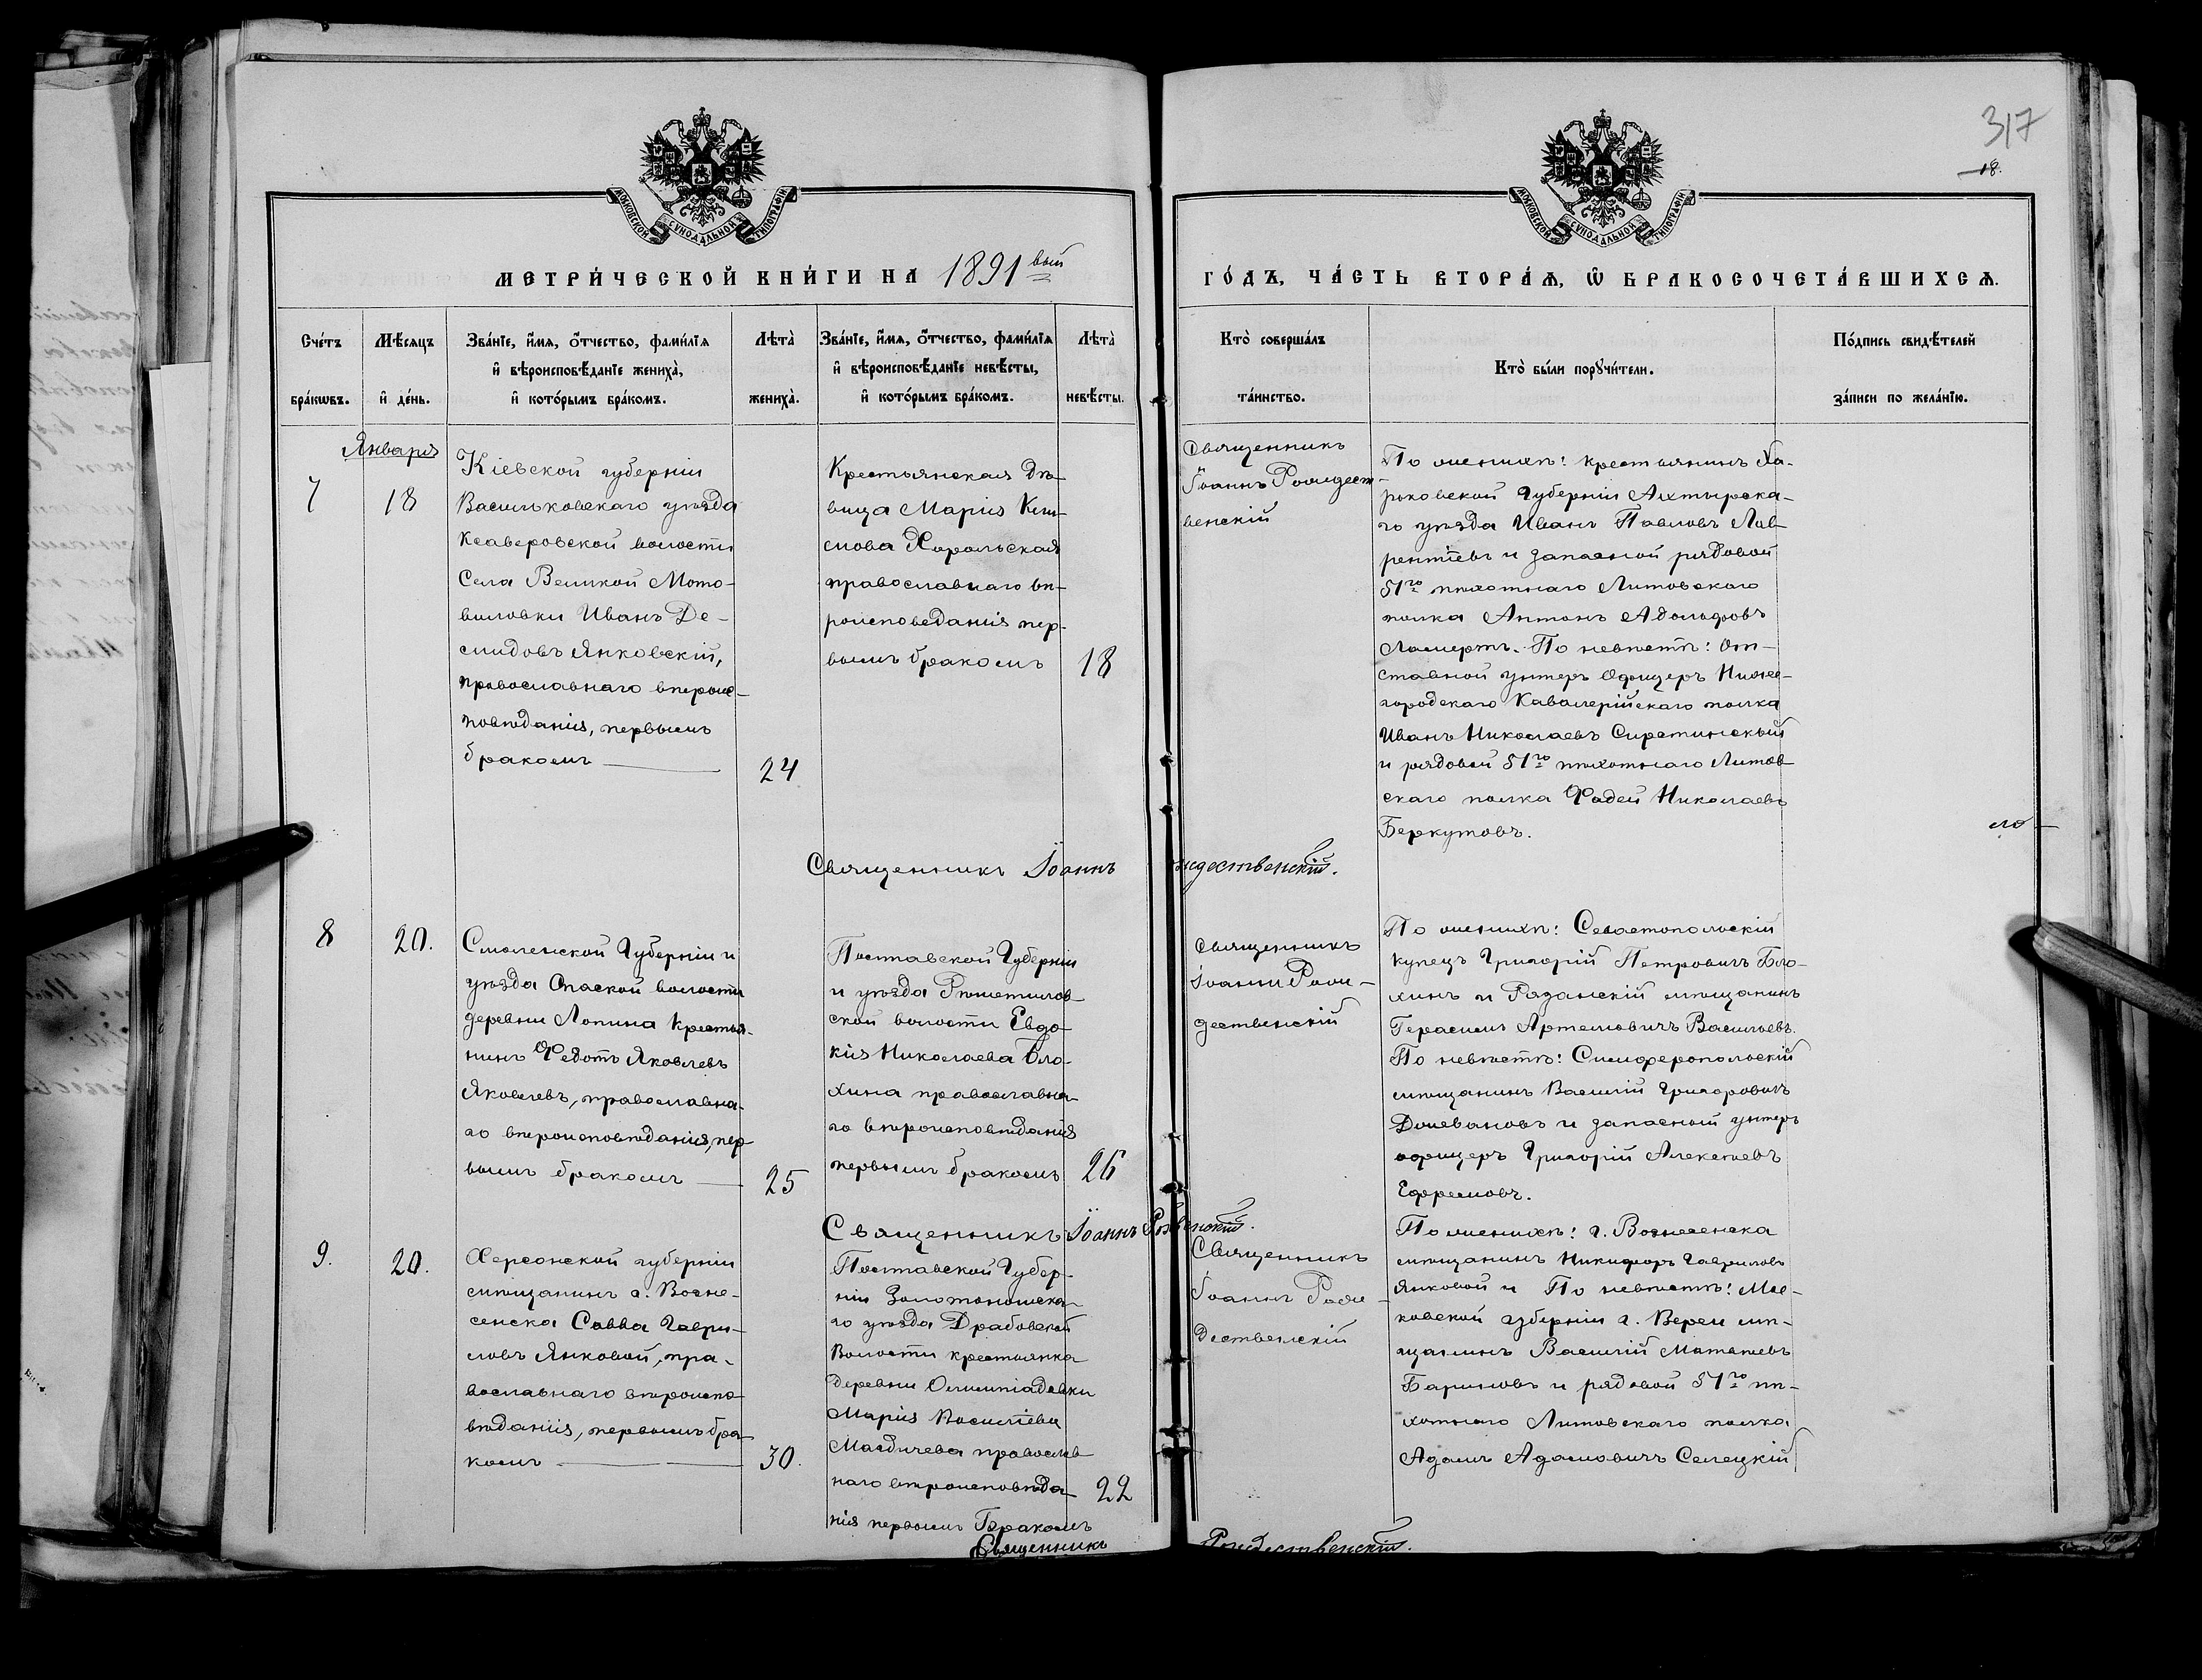 317
18.
МОСКОВСКОЙ СѴНОДАЛЬНОЙ ТИПОГРАФІИ
МОСКОВСКОЙ СѴНОДАЛЬНОЙ ТИПОГРАФІИ
МЕТРИ́ЧЕСКОЙ КНИ́ГИ НА 1891вый
ГО́ДЪ, ЧА́СТЬ ВТОРА́Я, Ѿ БРАКОСОЧЕТА́ВШИХСЯ.
Сче́тъ
бра́кѡвъ.
Мѣ́сяцъ
и҆ де́нь.
Зва́нїе, и҆́мя, о҆́тчество, фами́лїя
и҆ вѣроисповѣ́данїе жениха̀,
и҆ кото́рымъ бра́комъ.
Лѣта̀
жениха̀.
Зва́нїе, и҆́мя, о҆́тчество, фами́лїя
и҆ вѣроисповѣ́данїе невѣ́сты,
и҆ кото́рымъ бра́комъ.
Лѣта̀
невѣ́сты.
Кто̀ соверша́лъ
та́инство.
Кто̀ бы́ли порꙋчи́тели.
По́дпись свидѣ́телей
за́писи по жела́нїю.
Января
7
18
Кіевской губерніи
Васильковскаго уѣзда
Ксаверовской волости
Села Великой Мото-
виловки Иванъ Де-
мидовъ Янковскій,
православнаго вѣроис-
повѣданія, первымъ
бракомъ
24
Крестьянская Дѣ-
вица Марія
Хорольская
православнаго вѣ-
роисповеданія пер-
вымъ бракомъ
18
Священникъ
Іоаннъ Рождест-
венскій
По женихѣ: крестьянинъ Ха-
рьковской Губерніи Ахтырска-
го уѣзда Иванъ Павловъ Лав-
рентіевъ и запасной рядовой
51го пѣхотнаго Литовскаго
полка Антонъ Адольфовъ
По невѣстѣ: От-
ставной унтеръ Офицеръ Ниже-
городскаго Кавалерійскаго полка
Иванъ Николаевъ Сиротинскый
и рядовой 51го пѣхотнаго Литов-
скаго полка Фадей Николаевъ
Беркутовъ.
Священникъ Іоаннъ ждественскій.
8
20.
Смоленской Губерніи и
уѣзда Спаской волости
деревни Лопина Крестья-
нинъ Федотъ Яковлевъ
Яковлевъ, православна-
го вѣроисповѣданія, пер-
вымъ бракомъ
25
Полтавской Губерніи
и уѣзда Рѣшетилов-
ской волости Евдо-
кія Николаева Бло-
хина православна-
го вѣроисповѣданія
первымъ бракомъ
26
Священникъ
Іоаннъ Рож-
дественскій
По женихѣ: Севастопольскій
купецъ Григорій Петровичъ Бло-
хинъ и Рязанскій мѣщанинъ
Герасимъ Артемовичъ Васильевъ.
По невѣстѣ: Симферопольскій
мѣщанинъ Василій Григоровичъ
и запасный унтеръ
офицеръ Григорій Алексѣевъ
Ефремовъ.
Священникъ Іоаннъ Рождественскій.
9.
20.
Херсонской губерніи
мѣщанинъ г. Возне-
сенска Савва Гаври-
ловъ Янковой, пра-
вославнаго вѣроиспо-
вѣданія, первымъ бра-
комъ
30.
Полтавской Губер-
ніи Золотоношска-
го уѣзда Драбовской
Волости крестьянка
деревни Олимпіадовки
Марія Василіева
православ-
наго вѣроисповѣда-
нія первымъ Бракомъ
22
Священникъ
Іоаннъ Рож-
дественскій
По женихѣ: г. Вознесенска
мѣщанинъ Никифоръ Гавриловъ
Янковой и По невѣстѣ: Мос-
ковской губерніи г. Вереи мѣ-
щанинъ Василій Матвѣевъ
Бариновъ и рядовой 51го пѣ-
хотнаго Литовскаго полка
Адамъ Адамовичъ Селецкій
Священникъ Рождественскій.